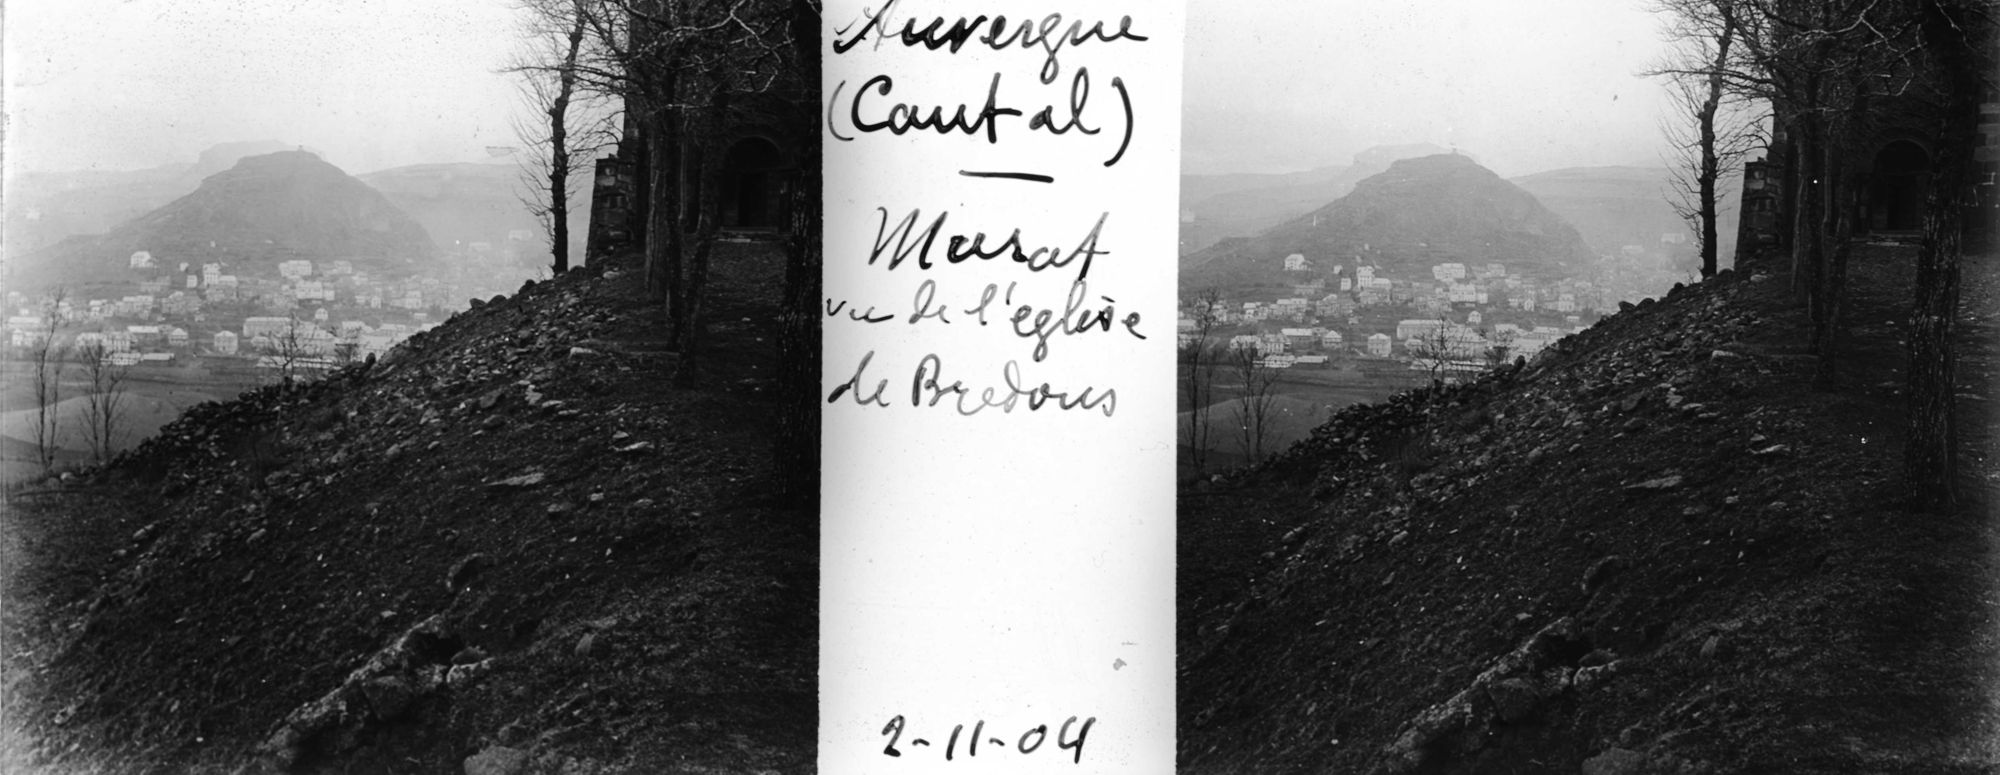 Auvergne
(Cantal)
Murat
vu de l'église
de Bredons
2-11-04